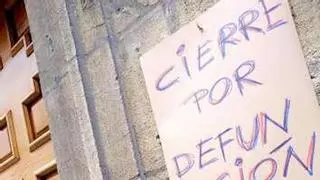 CIERRE
POR
DEFUN
CIÓN